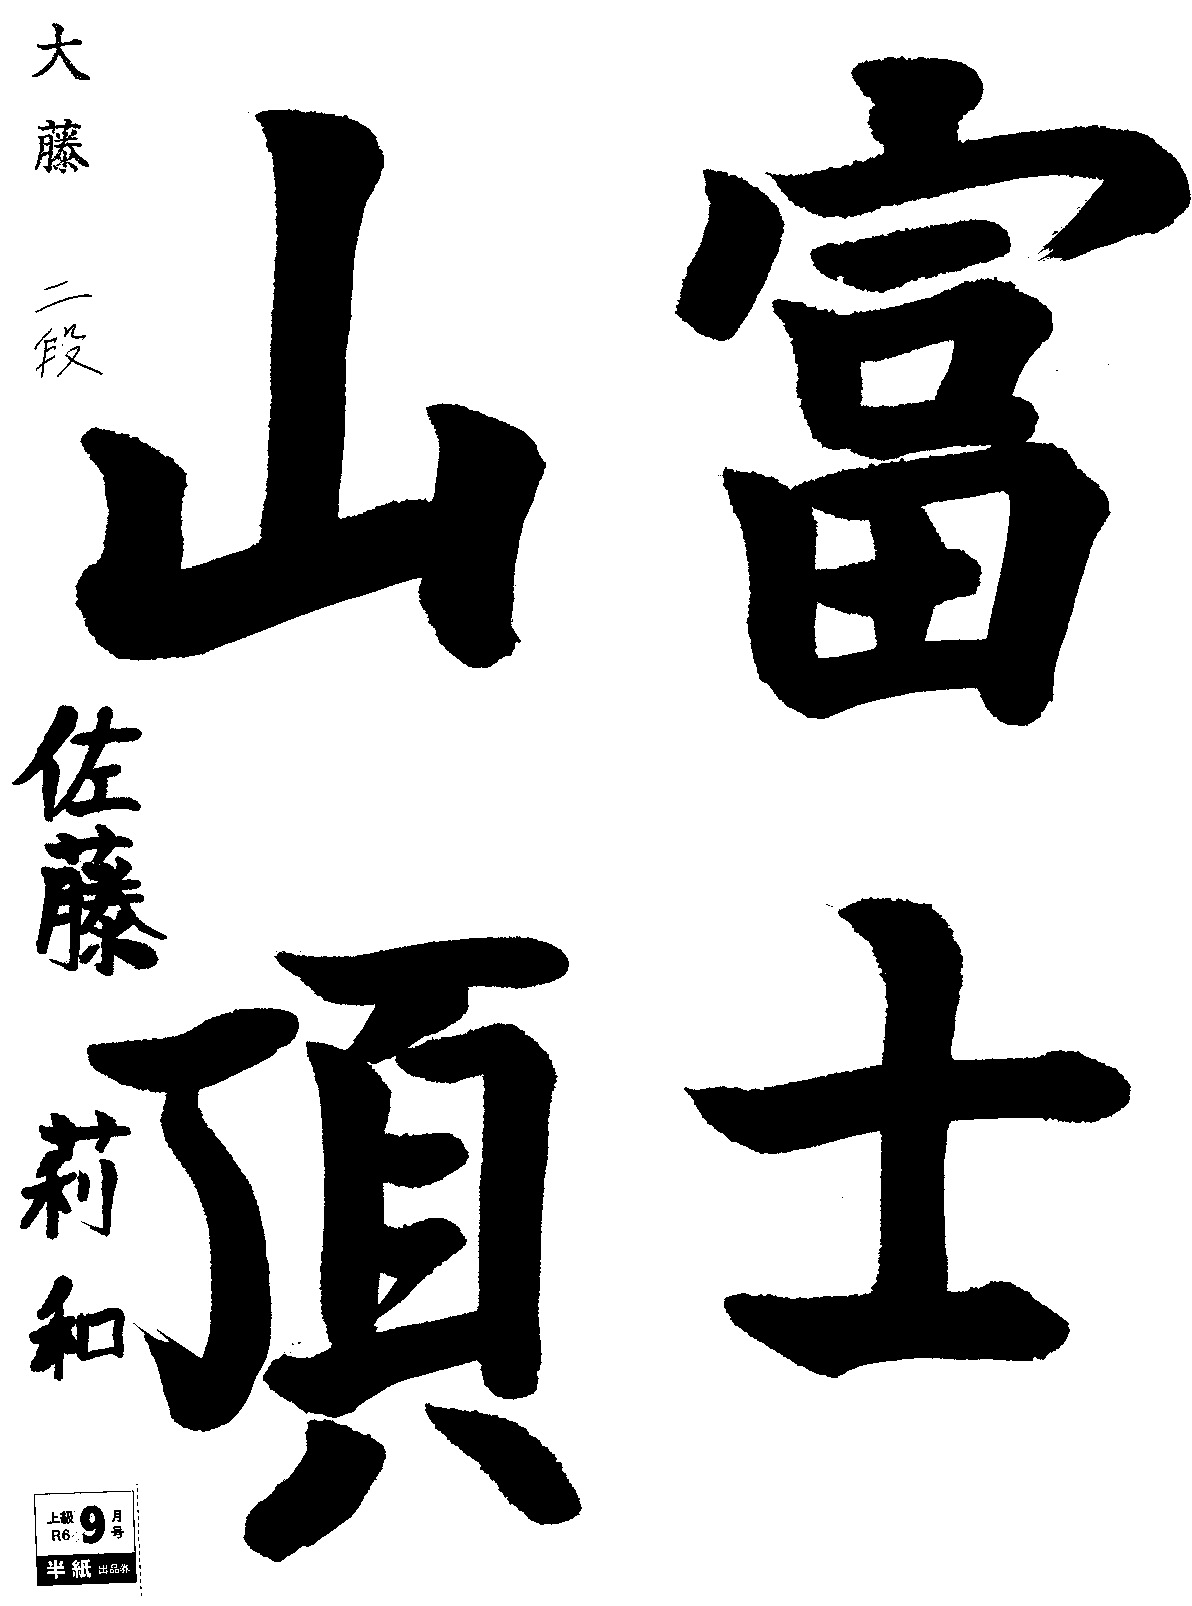 富士
山頂
大藤 二段
佐藤 莉和
上級 R6.9月号
半紙 出品券